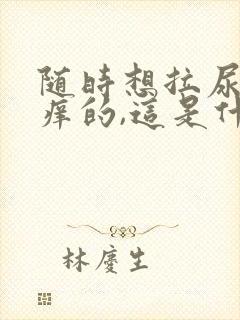 随时想拉尿
痒的,這是什
林慶生